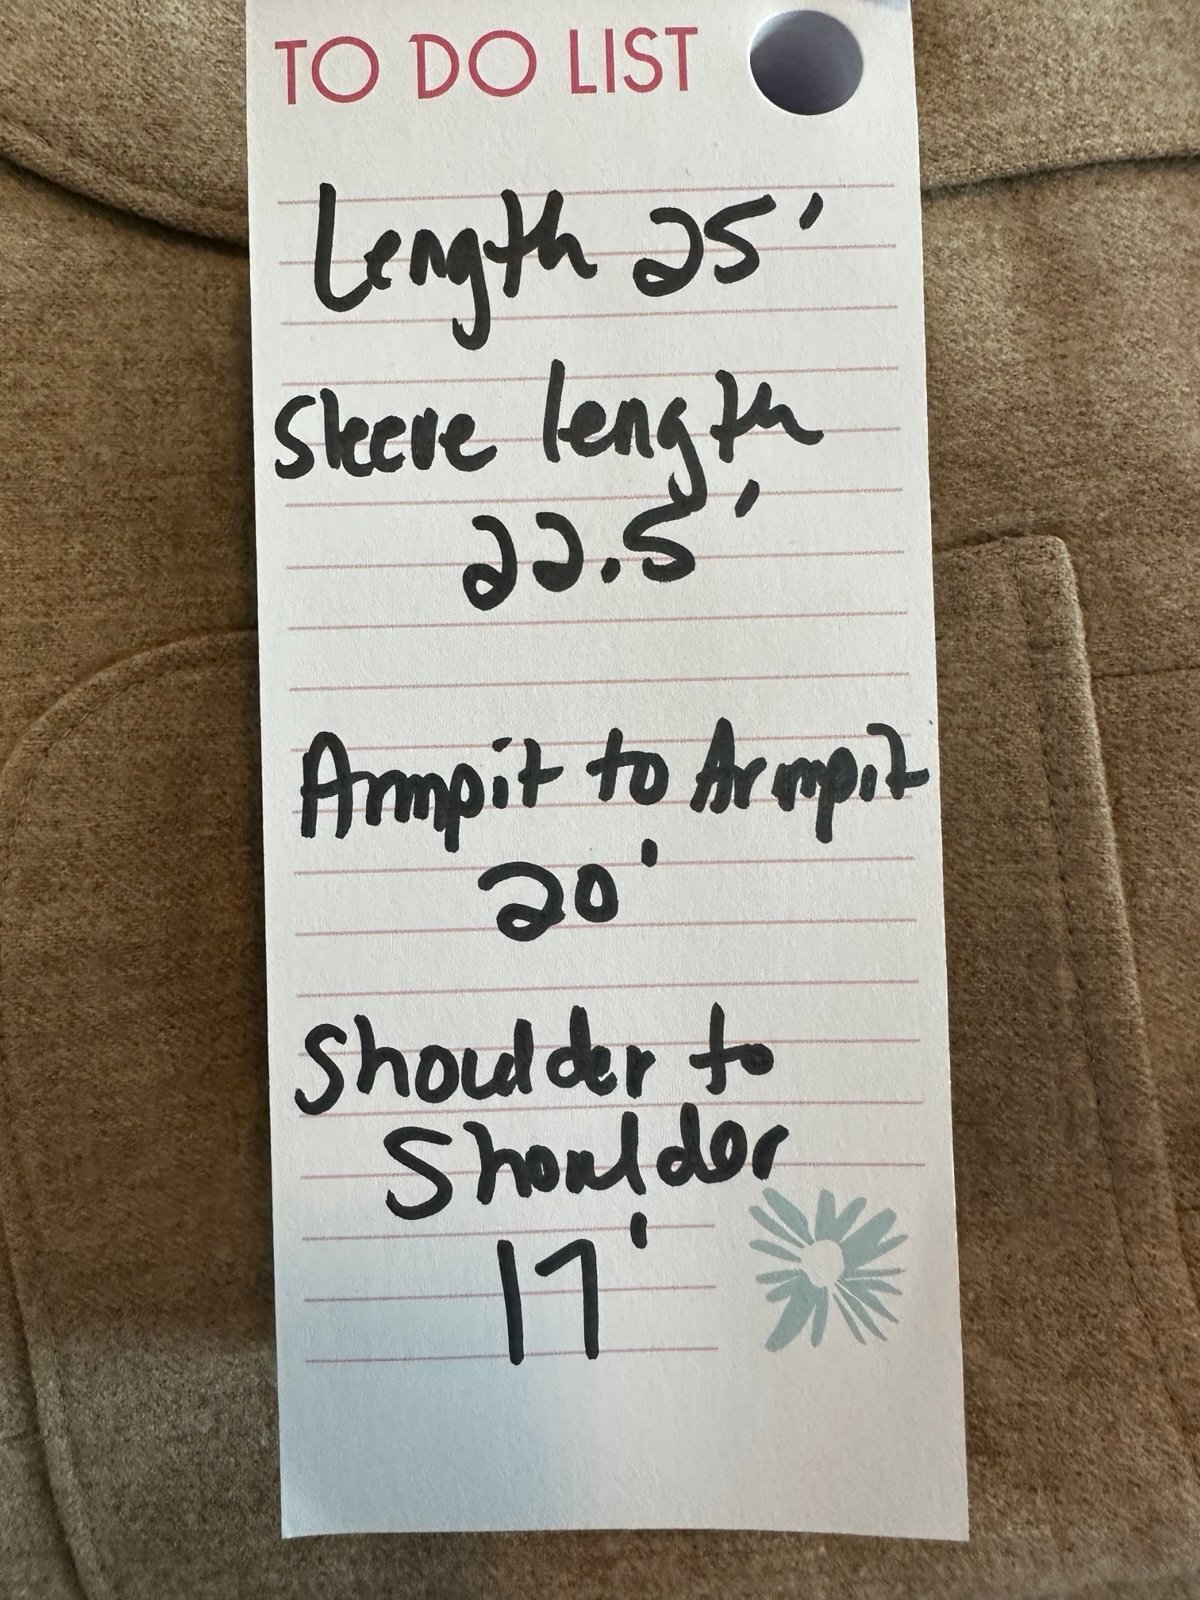 TO DO LIST
Length 25'
Sleeve length
22.5'
Armpit to Armpit
20'
Shoulder to
Shoulder
17'